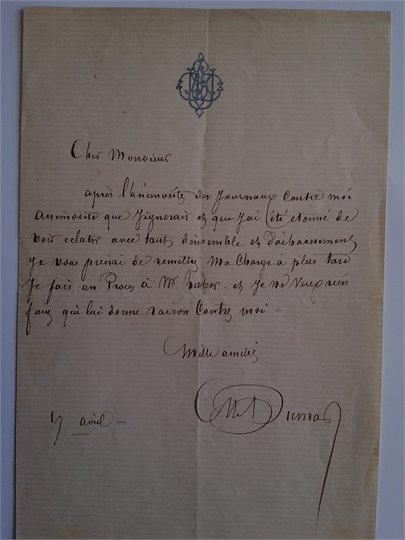 Cher Monsieur
après l'animosité des journaux contre moi
animosité que j'ignorais et que j'ai été etonné de
voir eclater avec tant d'ensemble et d'acharnement
je vous prierai de remettre ma charge à plus tard
je fais un Proces à Mr et je ne veux rien
faire qui lui donne raison contre moi -
Mille amitiés
17 avril - Dumas